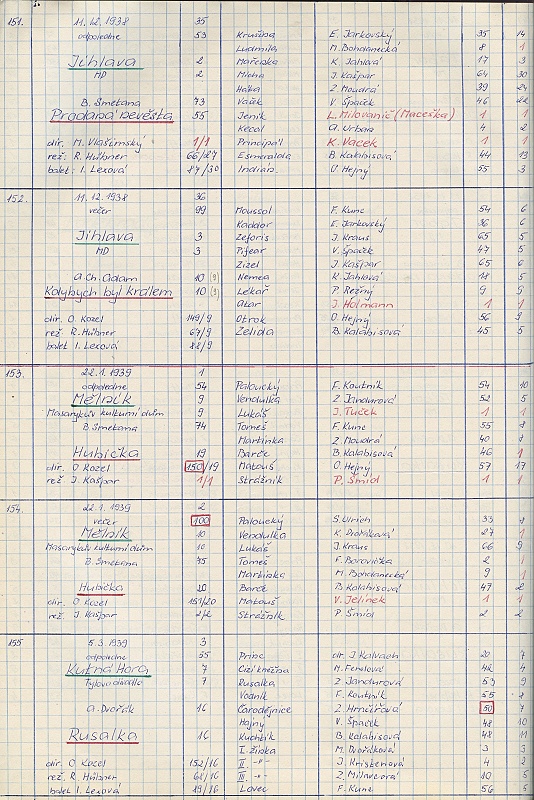 151. 11. 12. 1938 35
odpoledne 53 Krušina E. Jarkovský 35 14
Ludmila M. Bohdanecká 8 1
Jihlava 2 Mařenka K. Jahlová 17 3
MD 2 Mícha J. Kašpar 64 30
Háta Z. Moudrá 39 24
B. Smetana 73 Vašek V. Špaček 46 22
Prodaná nevěsta 55 Jeník L. Milovanič (Maceška) 1 1
Kecal A. Urban 4 2
dir. M. Vlašimský 1/1 Principál K. Vacek 1 1
rež. R. Hübner 66/27 Esmeralda B. Kalabisová 44 13
balet: I. Lexová 87/30 Indian O. Hejný 55 3
152. 11. 12. 1938 36
večer 99 Moussol F. Kunc 54 6
Kaddor E. Jarkovský 36 6
Jihlava 3 Zeforis J. Kraus 65 5
MD 3 Pifear V. Špaček 47 5
Zizel J. Kašpar 65 6
A. Ch. Adam 10 (3) Nemea K. Jahlová 18 5
Kdybych byl králem 10 (3) Lékař P. Režný 9 5
Atar J. Holmann 1 1
dir. O. Kozel 149/9 Otrok O. Hejný 56 9
rež R. Hübner 67/9 Zelida B. Kalabisová 45 5
balet I. Lexová 88/9
153. 22. 1. 1939 1
odpoledne 54 Paloucký F. Koutník 54 10
Mělník 9 Vendulka Z. Jandurová 52 5
Masarykův kulturní dům 9 Lukáš J. Tuček 1 1
B. Smetana 74 Tomeš F. Kunc 55 8
Martinka Z. Moudrá 40 8
Hubička 19 Barče B. Kalabisová 46 1
dir. O Kozel 150/19 Matouš O. Hejný 57 17
rež J. Kašpar 1/1 Strážník P. Šmíd 1 1
154. 22. 1. 1939 2
večer 100 Paloucký S. Ulrich 33 8
Mělník 10 Vendulka K. Dvořáková 27 1
Masarykův kulturní dům 10 Lukáš J. Kraus 66 9
B. Smetana 75 Tomeš F. Borovička 2 1
Martinka M. Bohdanecká 9 1
Hubička 20 Barče B. Kalabisová 47 2
dir. O. Kozel 151/20 Matouš V. Jelínek 1 1
rež. J. Kašpar 2/2 Strážník P. Šmíd 2 2
155 5. 3. 1939 3
odpoledne 55 Princ dr. J. Kalvach 20 7
Kutná Hora 7 Cizí kněžna M. Fenslová 42 4
Tylovo divadlo 7 Rusalka Z Jandurová 53 9
Vodník F. Koutník 55 8
A. Dvořák 16 Čarodějnice Z. Hrnčířová 50 7
Hajný V. Špaček 48 10
Rusalka 16 Kuchtík B. Kalabisová 48 11
I. žínka M. Dvořáková 3 3
dir. O Kozel 152/16 II. -"- J. Kristenová 4 2
rež. R. Hübner 68/16 III. -"- Z. Milavcová 10 5
balet I. Lexová 89/16 Lovec F. Kunc 56 5